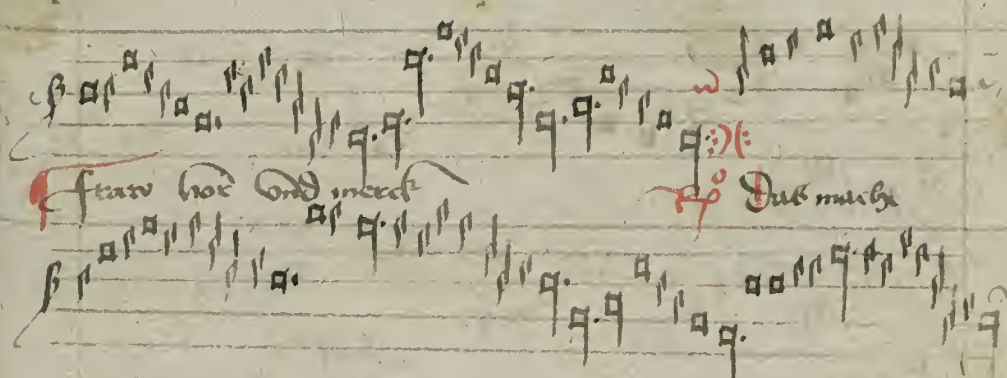 fraw hor vnd merck
Das mache